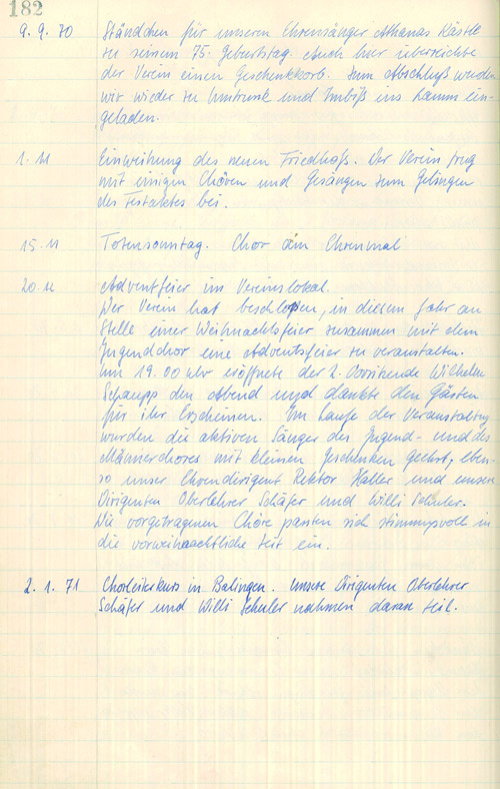 182
9. 9. 70 Ständchen für unseren Ehrensänger Athanas Kästle
zu seinem 75. Geburtstag. Auch hier überreichte
der Verein einen Geschenkkorb. Zum Abschluß wurden
wir wieder zu Umtrunk und Imbiß ins Lamm ein-
geladen.
1. 11 Einweihung des neuen Friedhofs. Der Verein trug
mit einigen Chören und Gesängen zum Gelingen
des Festaktes bei.
15. 11 Totensonntag. Chor am Ehrenmal
20. 12 Adventfeier im Vereinslokal.
Der Verein hat beschlossen, in diesem Jahr an
Stelle einer Weihnachtsfeier zusammen mit dem
Jugendchor eine Adventsfeier zu veranstalten.
Um 19.00 Uhr eröffnete der 2. Vorsitzende Wilhelm
Schaupp den Abend und dankte den Gästen
für ihr Erscheinen. Im Laufe der Veranstaltung
wurden die aktiven Sänger des Jugend- und des
Männerchores mit kleinen Geschenken geehrt, eben-
so unser Ehrendirigent Rektor Haller und unsere
Dirigenten Oberlehrer Schäfer und Willi Schuler.
Die vorgetragenen Chöre passten sich stimmungsvoll in
die vorweihnachtliche Zeit ein.
2. 1. 71 Chorleiterkurs in Balingen. Unsere Dirigenten Oberlehrer
Schäfer und Willi Schuler nahmen daran teil.